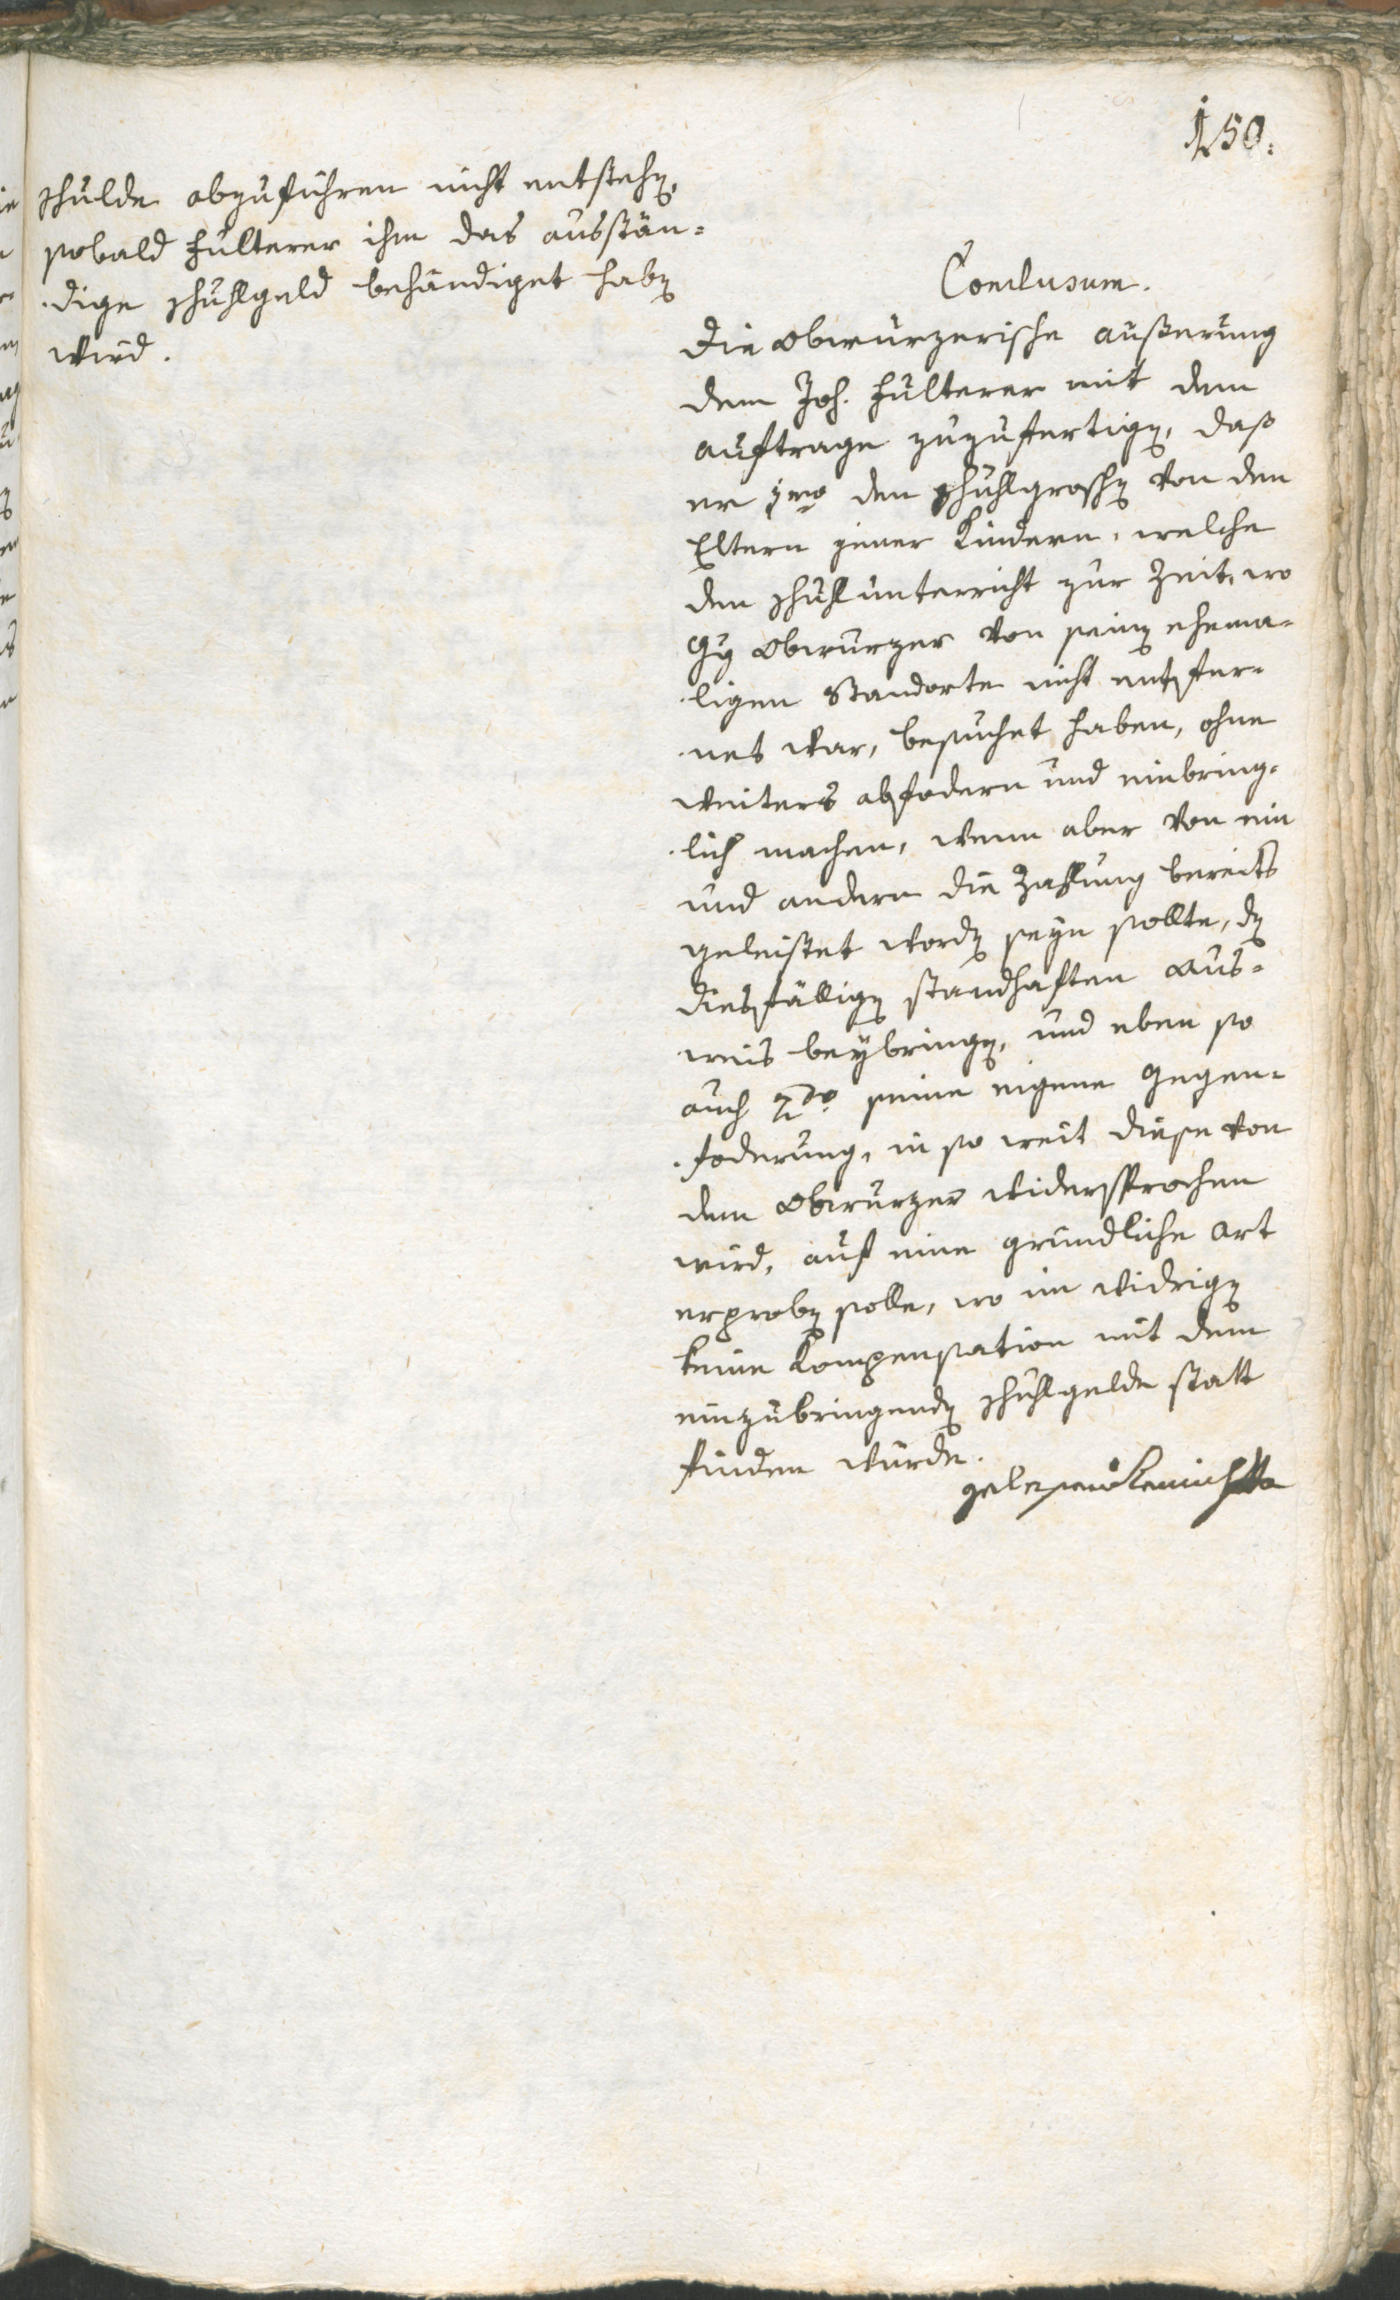 150.
schulde abzuführen nicht entstehen,
sobald Hulterer ihm das ausstän-
dige Schuhlgeld behändiget haben
wird.
Conclusum.
Die Obwurzerische äußerung
dem Joh. Hulterer mit dem
auftrage zuzufertigen, daß
er 1mo den schuhlgroschen von den
Eltern jener Kindern, welche
den schuhlunterricht zur Zeit, wo
Gg Obwurzer von seinen ehema-
ligen Standorte nicht entfer-
net war, besuchet haben, ohne
weiters abfodern und einbring-
lich machen, wenn aber von ein
und andern die Zahlung bereits
geleistet worden seyn sollte, den
diesfälligen standhaften Aus-
weis beybringen, und eben so
auch 2do seine eigene Gegen-
foderung, in so weit diese von
dem Obwurzer widersprochen
wird, auf eine gründliche Art
erproben solle, wo im widrigen
keine Kompensation mit dem
einzubringenden schuhlgelde statt
finden würde.